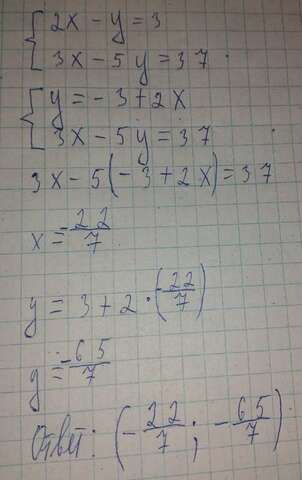 2x - y = 3
3x - 5y = 37
y = -3 + 2x
3x - 5y = 37
3x - 5(-3 + 2x) = 37
x = -22/7
y = 3 + 2 · (-22/7)
y = -65/7
Ответ: (-22/7; -65/7)